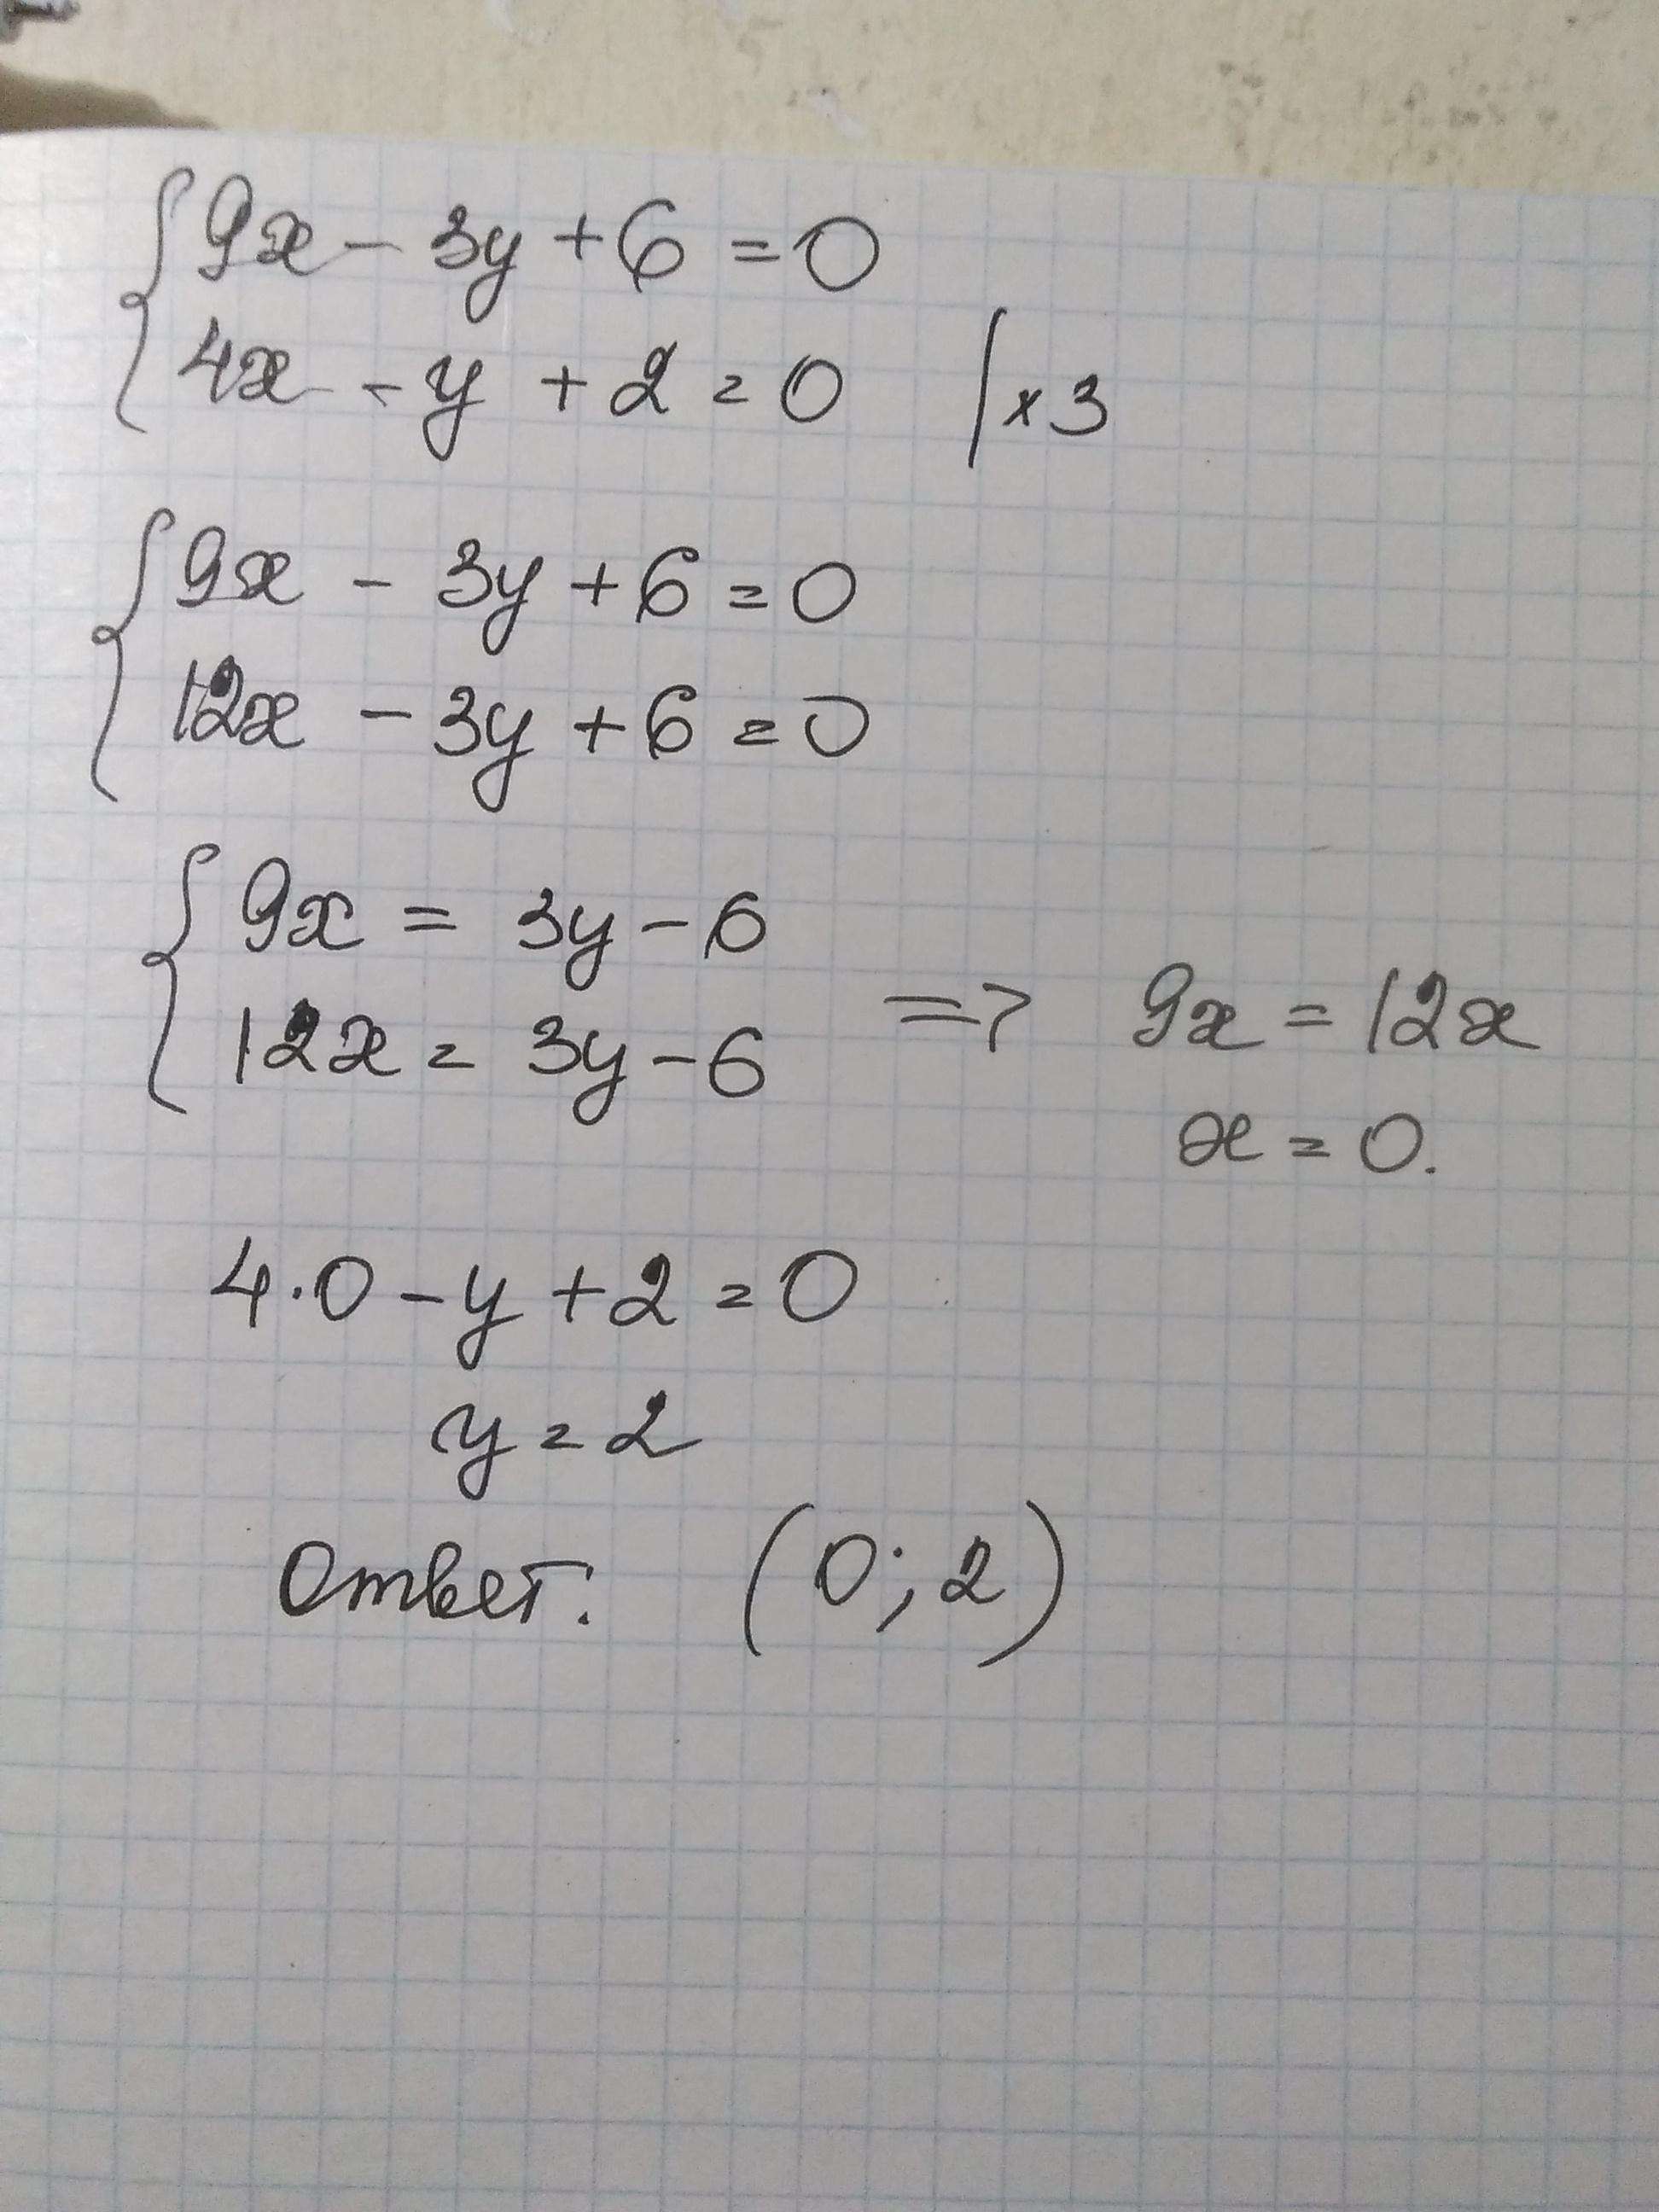 { 9x - 3y + 6 = 0
4x - y + 2 = 0 | x 3
{ 9x - 3y + 6 = 0
12x - 3y + 6 = 0
{ 9x = 3y - 6
12x = 3y - 6 => 9x = 12x
x = 0.
4·0 - y + 2 = 0
y = 2
Ответ: (0; 2)